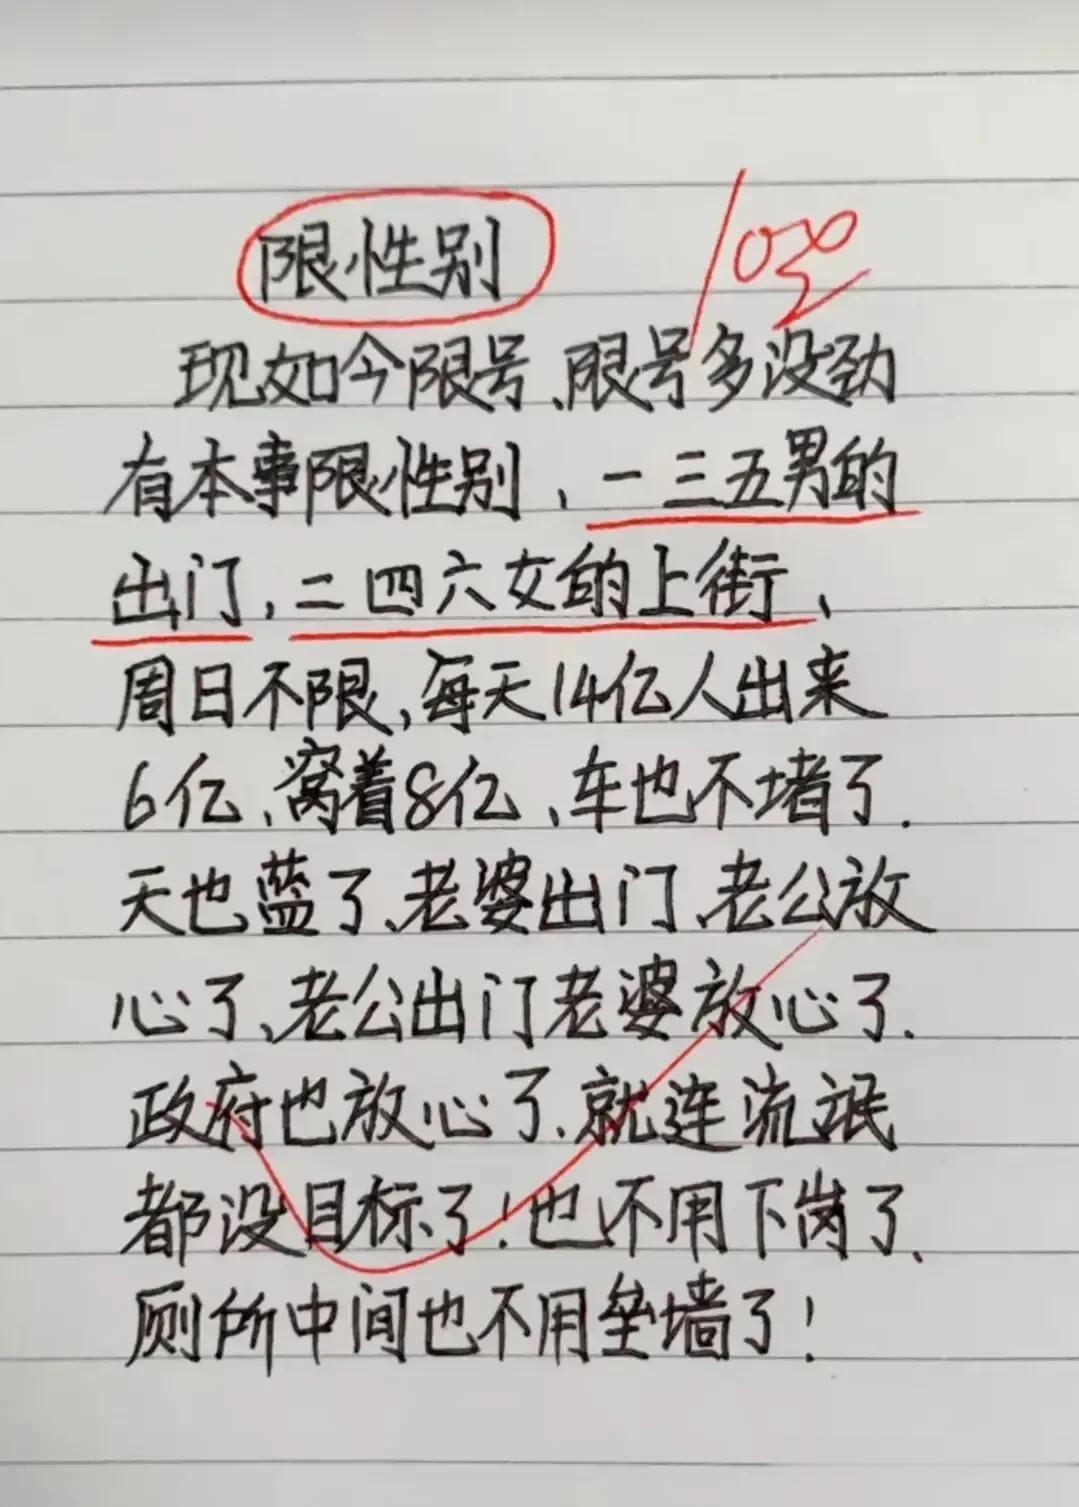 限性别
100
现如今限号、限号多没劲
有本事限性别、一三五男的
出门,二四六女的上街、
周日不限,每天14亿人出来
6亿、窝着8亿、车也不堵了.
天也蓝了、老婆出门、老公放
心了、老公出门老婆放心了.
政府也放心了、就连流氓
都没目标了!也不用下岗了、
厕所中间也不用垒墙了!